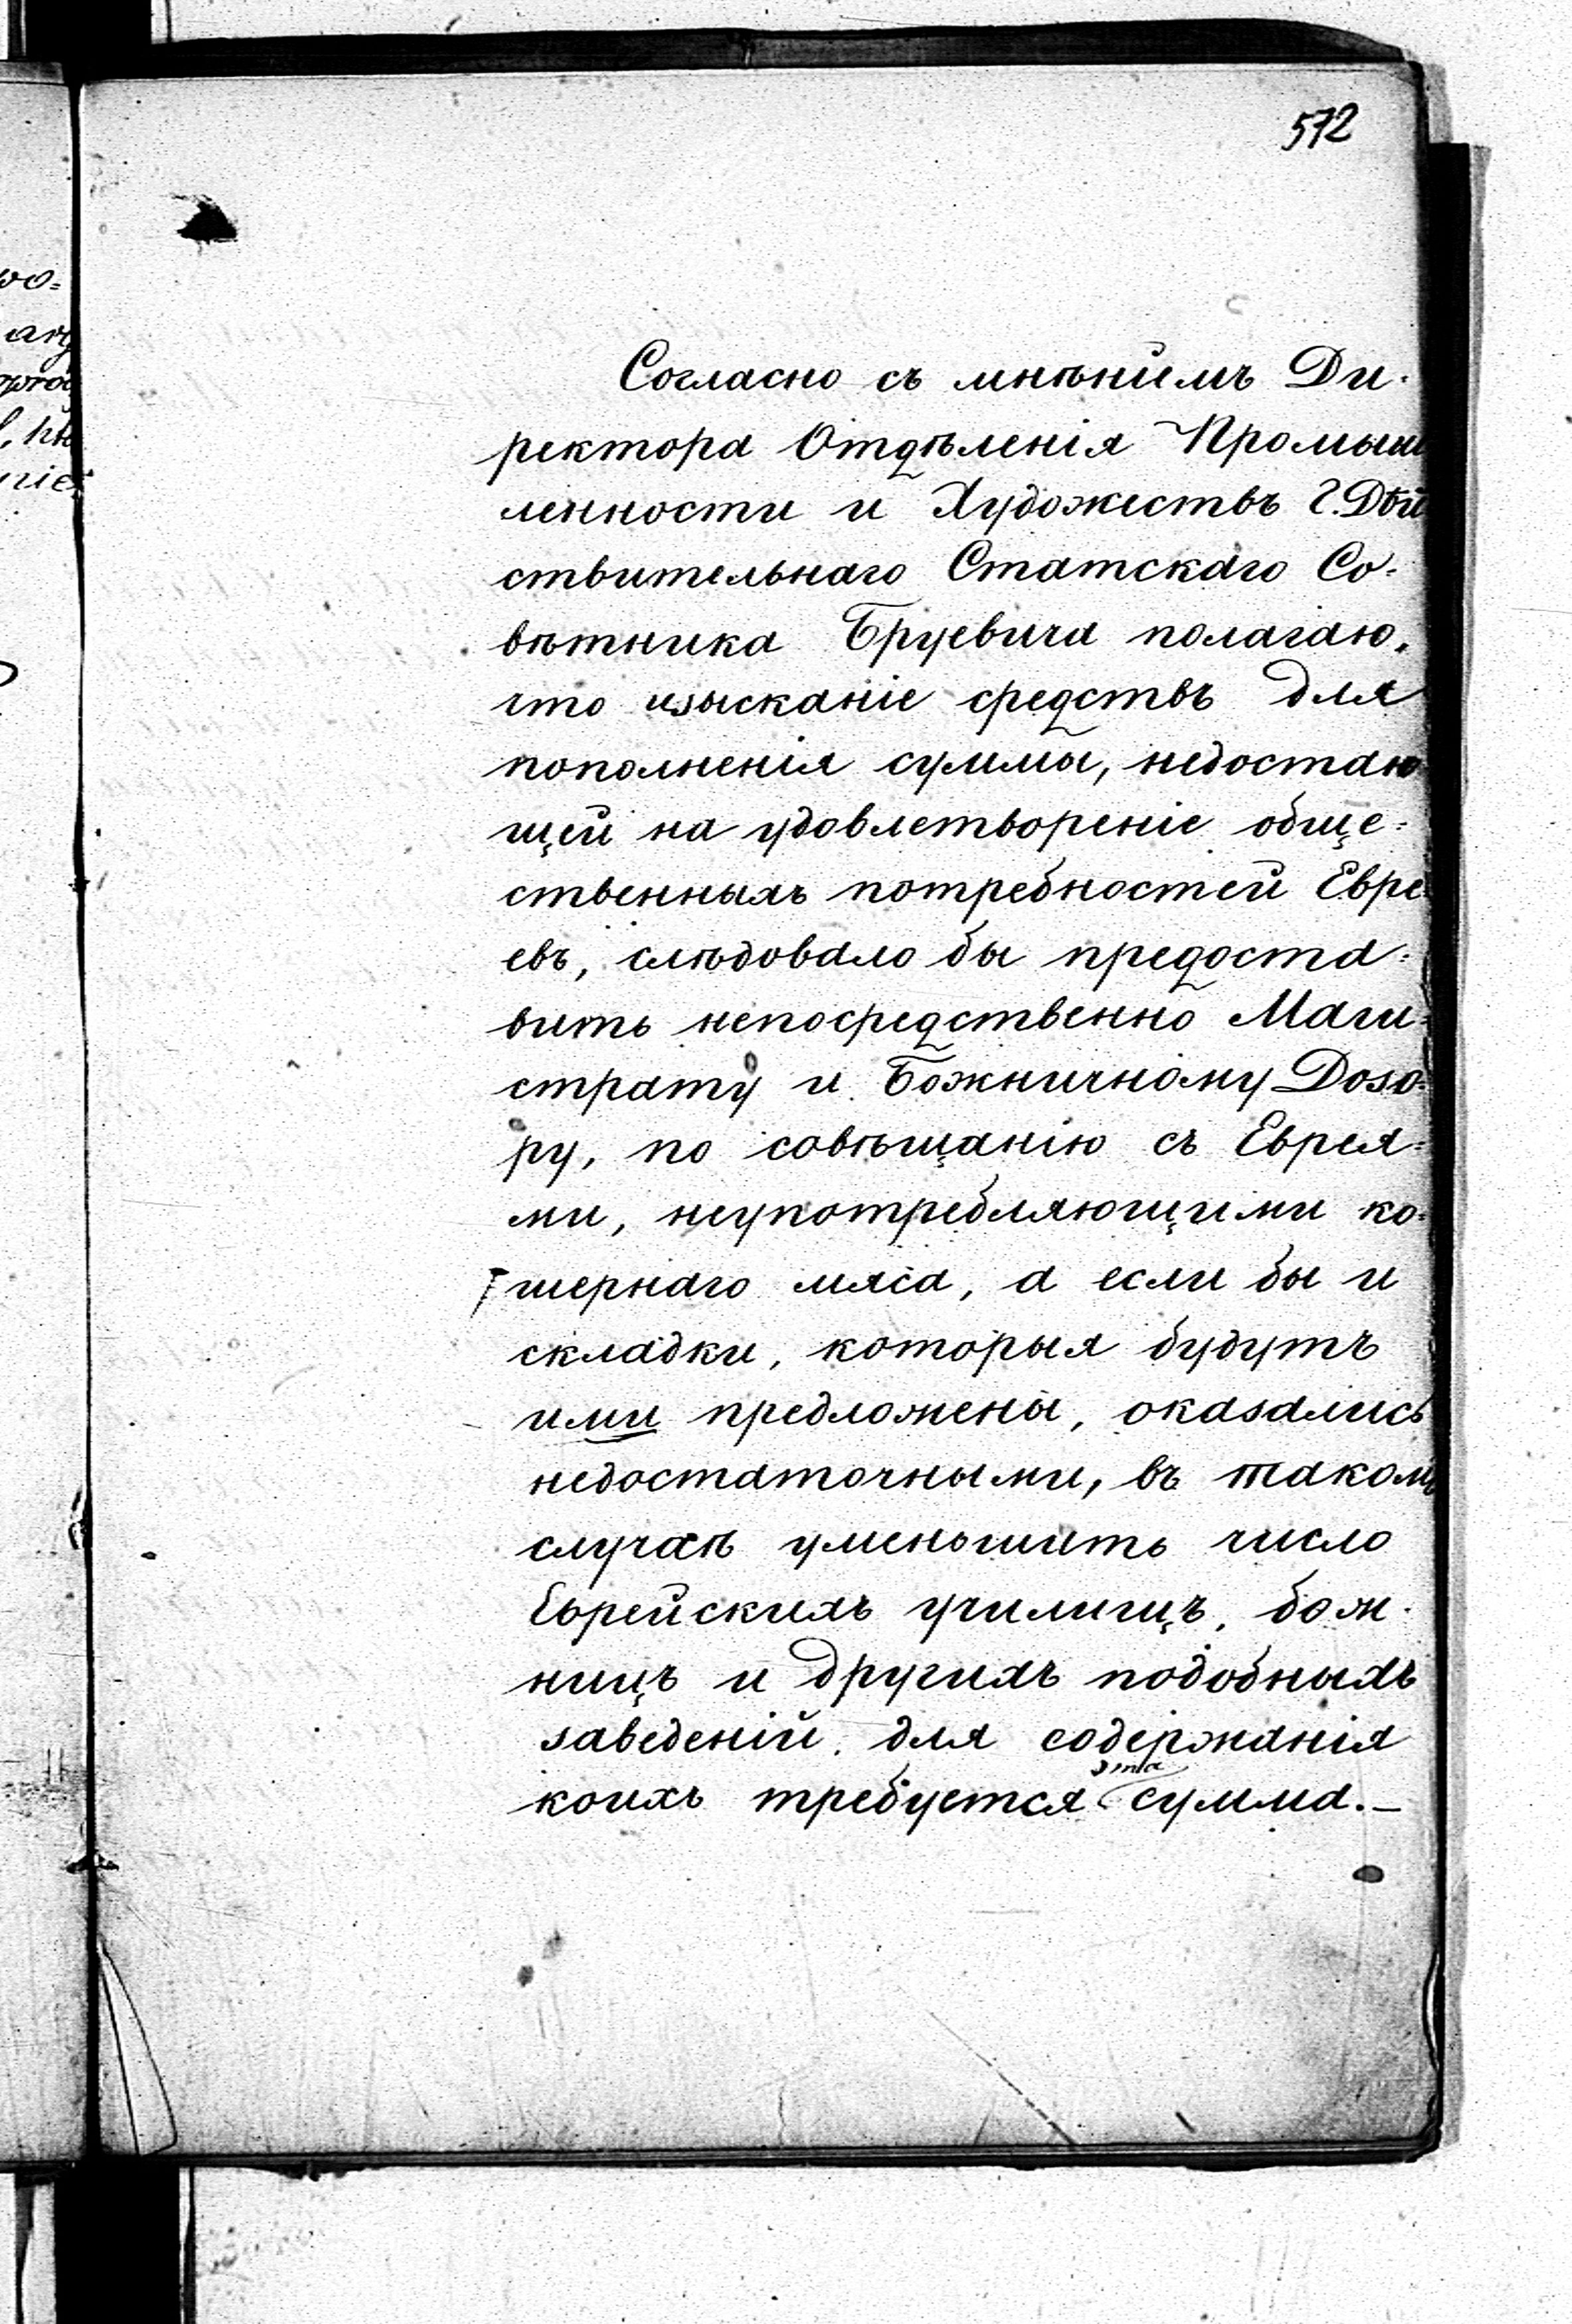 572
Согласно съ мнѣніемъ Ди-
ректора Отдѣленія Промыш
ленности и Художествъ Г. Дѣй
ствительнаго Статскаго Со-
вѣтника Бруевича полагаю,
что изысканіе средствъ для
пополненія суммы, недостаю
щей на удовлетвореніе обще=
ственныхъ потребностей Евре
евъ, слѣдовало бы предоста=
вить непосредственно Маги=
страту и Божничному Дозо=
ру, по совѣщанію съ Еврея=
ми, неупотребляющими ко=
шернаго мяса, а если бы и
складки, которыя будутъ
ими предложены, оказались
недостаточными, въ такомъ
случаѣ уменьшить число
Еврейскихъ училищъ, бож-
ницъ и другихъ подобныхъ
заведеній, для содержанія
коихъ требуется эта сумма.—